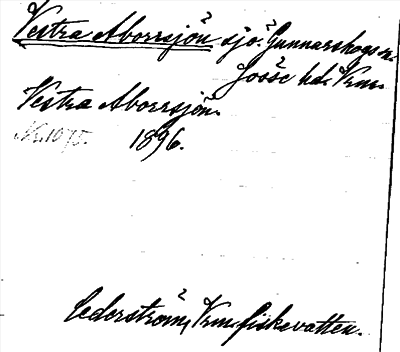 Vestra Aborrsjön sjö. Gunnarskogs sn.
Jösse hd. Vrm.
Vestra Aborrsjön.
1896.
Cederström, Vrm. fiskevatten.